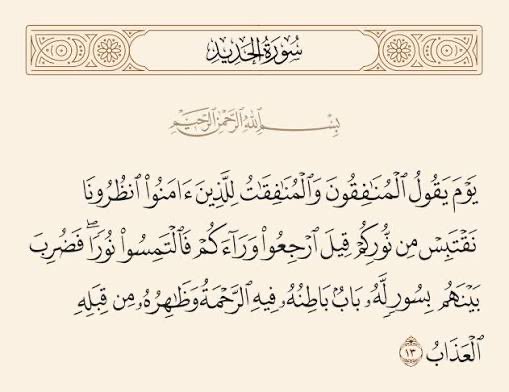 سُورَةُ الحَدِيدِ
بِسْمِ اللَّهِ الرَّحْمَٰنِ الرَّحِيمِ
يَوْمَ يَقُولُ ٱلْمُنَٰفِقُونَ وَٱلْمُنَٰفِقَٰتُ لِلَّذِينَ ءَامَنُوا۟ ٱنظُرُونَا
نَقْتَبِسْ مِن نُّورِكُمْ قِيلَ ٱرْجِعُوا۟ وَرَآءَكُمْ فَٱلْتَمِسُوا۟ نُورًۭاۖ فَضُرِبَ
بَيْنَهُم بِسُورٍۢ لَّهُۥ بَابٌۢ بَاطِنُهُۥ فِيهِ ٱلرَّحْمَةُ وَظَٰهِرُهُۥ مِن قِبَلِهِ
ٱلْعَذَابُ ١٣